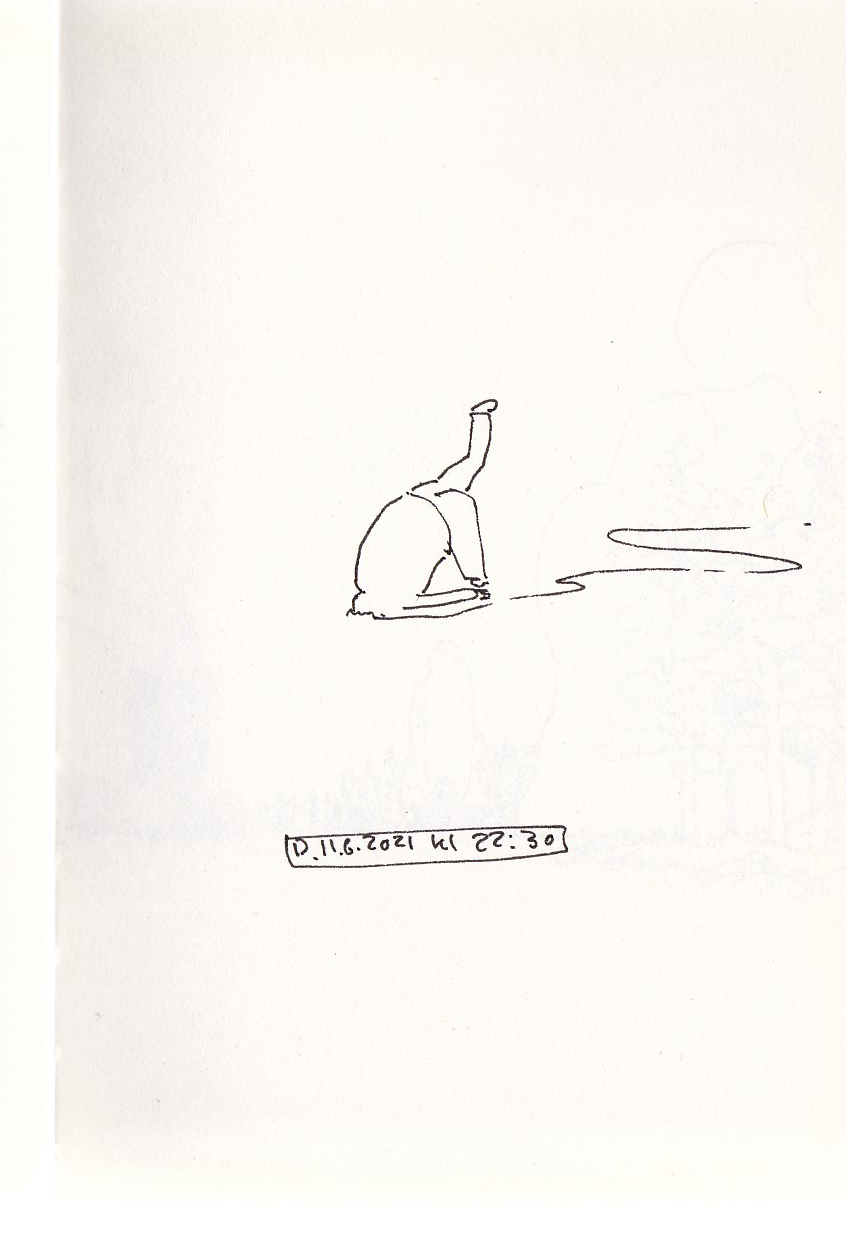 D. 11.6.2021 kl 22:30